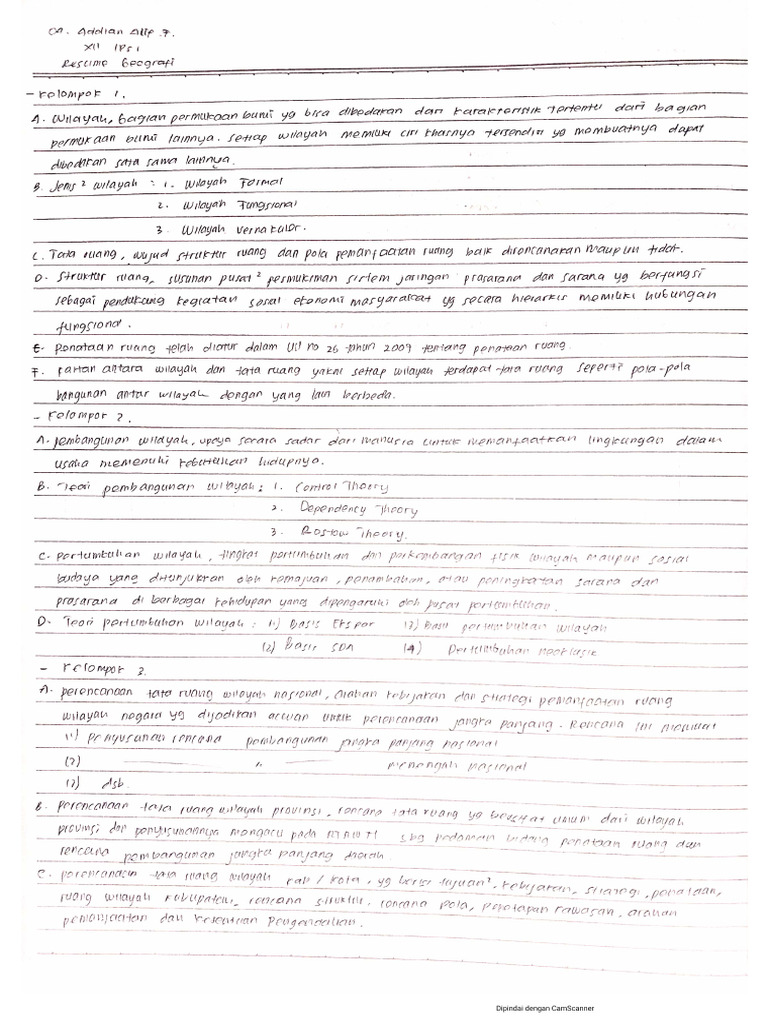 04. Addian Alif .F.
XII IPS 1
Resume Geografi
- Kelompok 1.
A. Wilayah, bagian permukaan bumi yg bisa dibedakan dari karakteristik tertentu dari bagian
permukaan bumi lainnya. Setiap wilayah memiliki ciri khasnya tersendiri yg membuatnya dapat
dibedakan satu sama lainnya.
B. Jenis² wilayah : 1. Wilayah Formal
2. Wilayah Fungsional
3. Wilayah Vernakular.
C. Tata ruang, wujud struktur ruang dan pola pemanfaatan ruang baik direncanakan maupun tidak.
D. Struktur ruang, susunan pusat² permukiman sistem jaringan prasarana dan sarana yg berfungsi
sebagai pendukung kegiatan sosial ekonomi masyarakat yg secara hierarkis memiliki hubungan
fungsional.
E. Penataan ruang telah diatur dalam UU no 26 tahun 2007 tentang penataan ruang.
F. Kaitan antara wilayah dan tata ruang yakni setiap wilayah terdapat tata ruang seperti pola-pola
bangunan antar wilayah dengan yang lain berbeda.
- Kelompok 2.
A. Pembangunan wilayah, upaya secara sadar dari manusia untuk memanfaatkan lingkungan dalam
usaha memenuhi kebutuhan hidupnya.
B. Teori pembangunan wilayah : 1. Control Theory
2. Dependency Theory
3. Rostow Theory.
C. Pertumbuhan wilayah, tingkat pertumbuhan dan perkembangan fisik wilayah maupun sosial
budaya yang ditunjukkan oleh kemajuan, penambahan, atau peningkatan sarana dan
prasarana di berbagai kehidupan yang dipengaruhi oleh pusat pertumbuhan.
D. Teori pertumbuhan wilayah : (1) Basis Ekspor (3) Basis pertumbuhan wilayah
(2) Basis SDA (4) Pertumbuhan Neoklasik
- Kelompok 3.
A. Perencanaan tata ruang wilayah nasional, arahan kebijakan dan strategi pemanfaatan ruang
wilayah negara yg dijadikan acuan untuk perencanaan jangka panjang. Rencana ini memuat
(1) Penyusunan rencana pembangunan jangka panjang nasional
(2) ——— " ——— menengah nasional
(3) dsb.
B. Perencanaan tata ruang wilayah provinsi, rencana tata ruang yg bersifat umum dari wilayah
provinsi dan penyusunannya mengacu pada sbg pedoman bidang penataan ruang dan
rencana pembangunan jangka panjang daerah
C. Perencanaan tata ruang wilayah kab/kota, yg berisi tujuan², kebijakan, strategi, penataan,
ruang wilayah kabupaten, rencana struktur, rencana pola, penetapan kawasan, arahan
pemanfaatan dan ketentuan pengendalian.
Dipindai dengan CamScanner